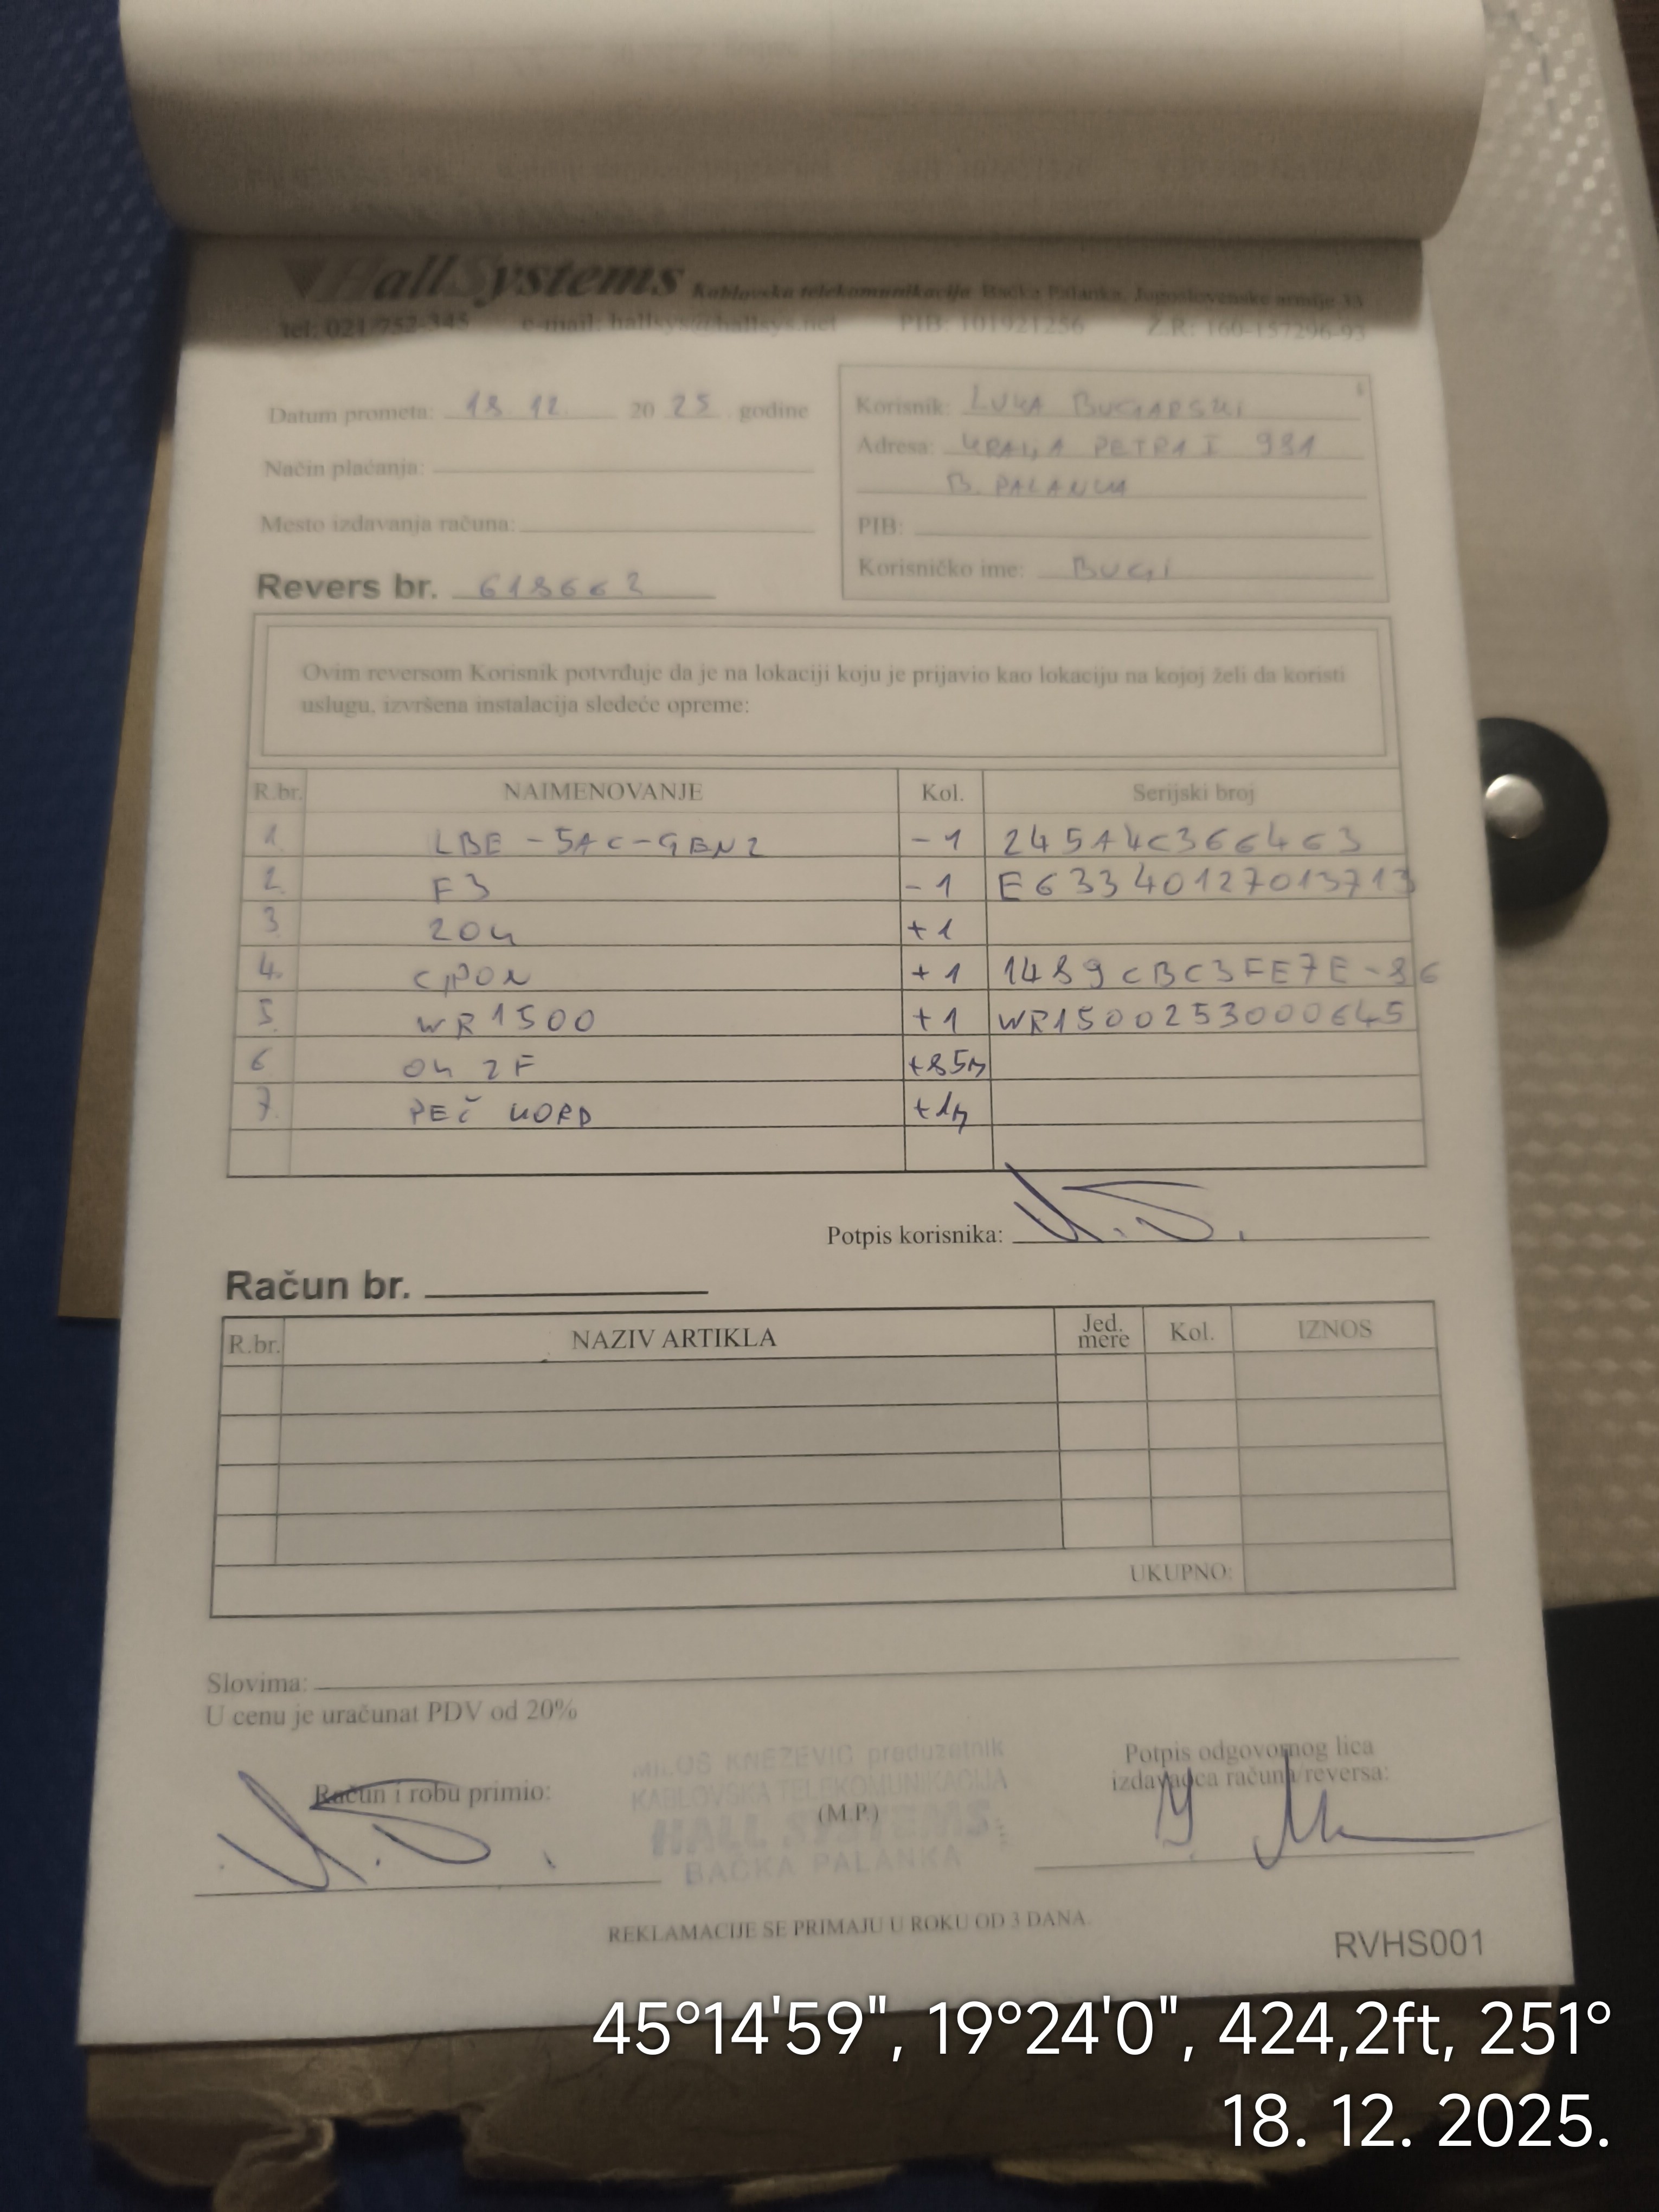 HallSystems Kablovska telekomunikacija Bačka Palanka, Jugoslovenske armije 33
tel: 021/752-345 e-mail: hallsys@hallsys.net PIB: 101921256 Ž.R: 160-157296-93
Datum prometa: 18 12. 20 25 godine
Način plaćanja:
Mesto izdavanja računa:
Revers br. 618662
Korisnik: LUKA BUGARSKI
Adresa: KRALJA PETRA I 981
B. PALANKA
PIB:
Korisničko ime: BUGI
Ovim reversom Korisnik potvrđuje da je na lokaciji koju je prijavio kao lokaciju na kojoj želi da koristi
uslugu, izvršena instalacija sledeće opreme:
R.br. NAIMENOVANJE Kol. Serijski broj
1. LBE-5AC-GEN2 -1 245A4C366463
2. F3 -1 E63340127013713
3 ZOK +1
4. GPON +1 1489CBC3FE7E-86
5. WR1500 +1 WR1500253000645
6 OK 2F +85m
7. PEČ KORD +1m
Potpis korisnika:
Račun br.
R.br. NAZIV ARTIKLA Jed. mere Kol. IZNOS
UKUPNO:
Slovima:
U cenu je uračunat PDV od 20%
Račun i robu primio:
MILOŠ KNEŽEVIĆ preduzetnik
KABLOVSKA TELEKOMUNIKACIJA
(M.P.)
HALL SYSTEMS
BAČKA PALANKA
Potpis odgovornog lica
izdavaoca računa/reversa:
REKLAMACIJE SE PRIMAJU U ROKU OD 3 DANA.
RVHS001
45°14'59", 19°24'0", 424,2ft, 251°
18. 12. 2025.